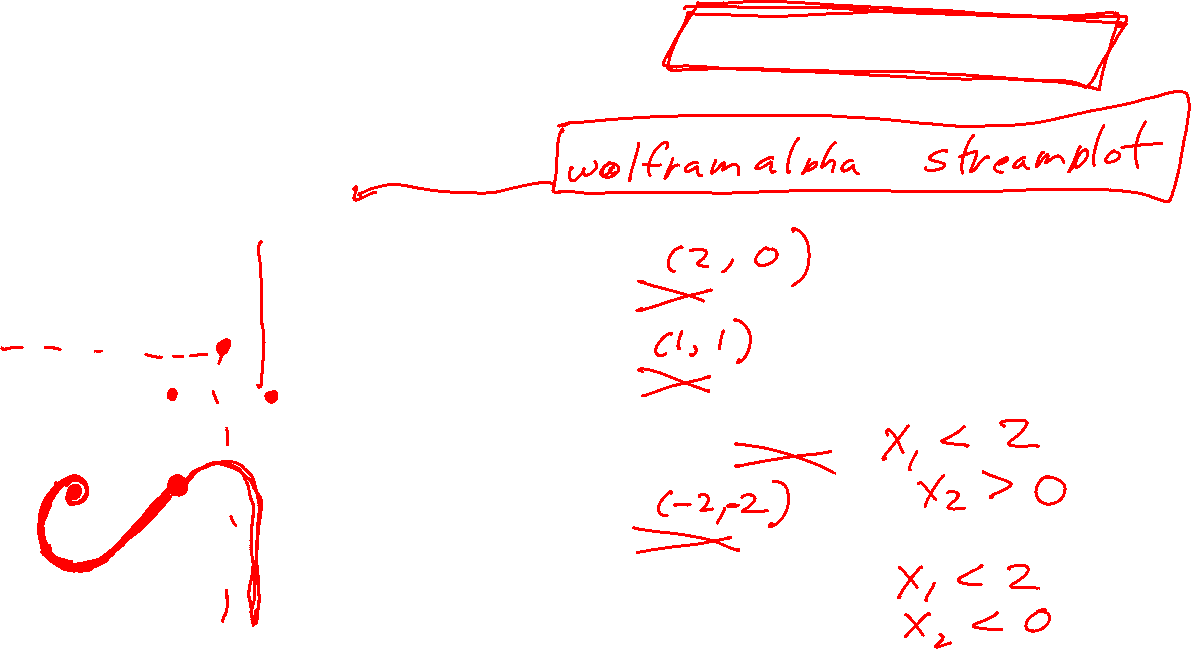 wolframalpha streamplot
(2, 0)
(1, 1)
x₁ < 2
x₂ > 0
(-2,-2)
x₁ < 2
x₂ < 0